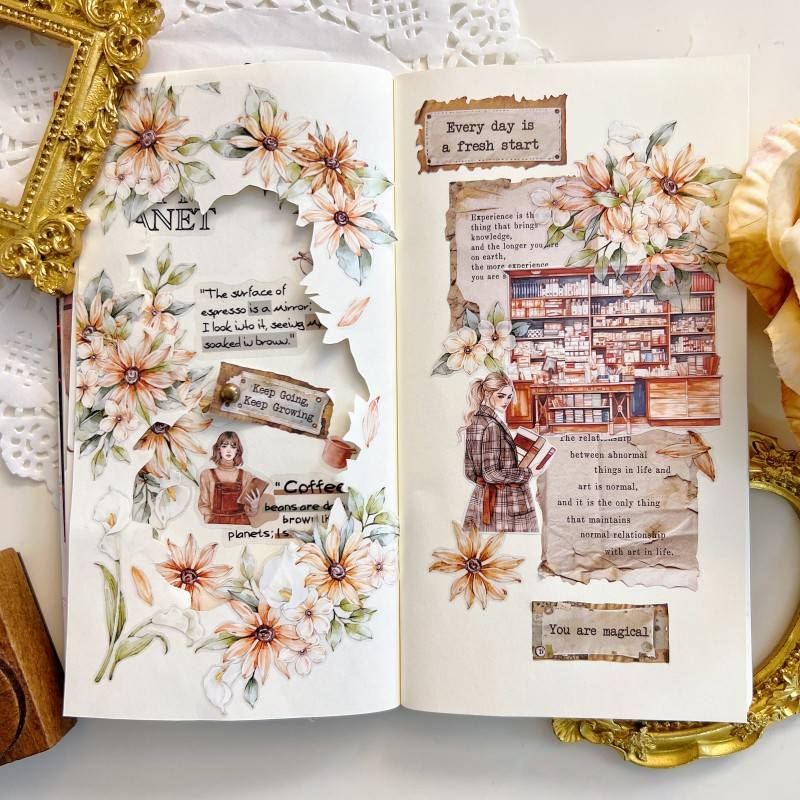 ANET
"The surface of
espresso is a mirror.
I look into it, seeing my
soaked in brown."
Keep Going,
Keep Growing
"Coffee
beans are
brown
planets; I s
Every day is
a fresh start
Experience is the
thing that brings
knowledge,
and the longer you are
on earth,
the more experience
you are s
The relationship
between abnormal
things in life and
art is normal,
and it is the only thing
that maintains
normal relationship
with art in life.
You are magical